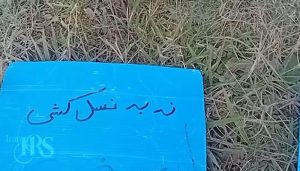 نه به نسل کشی